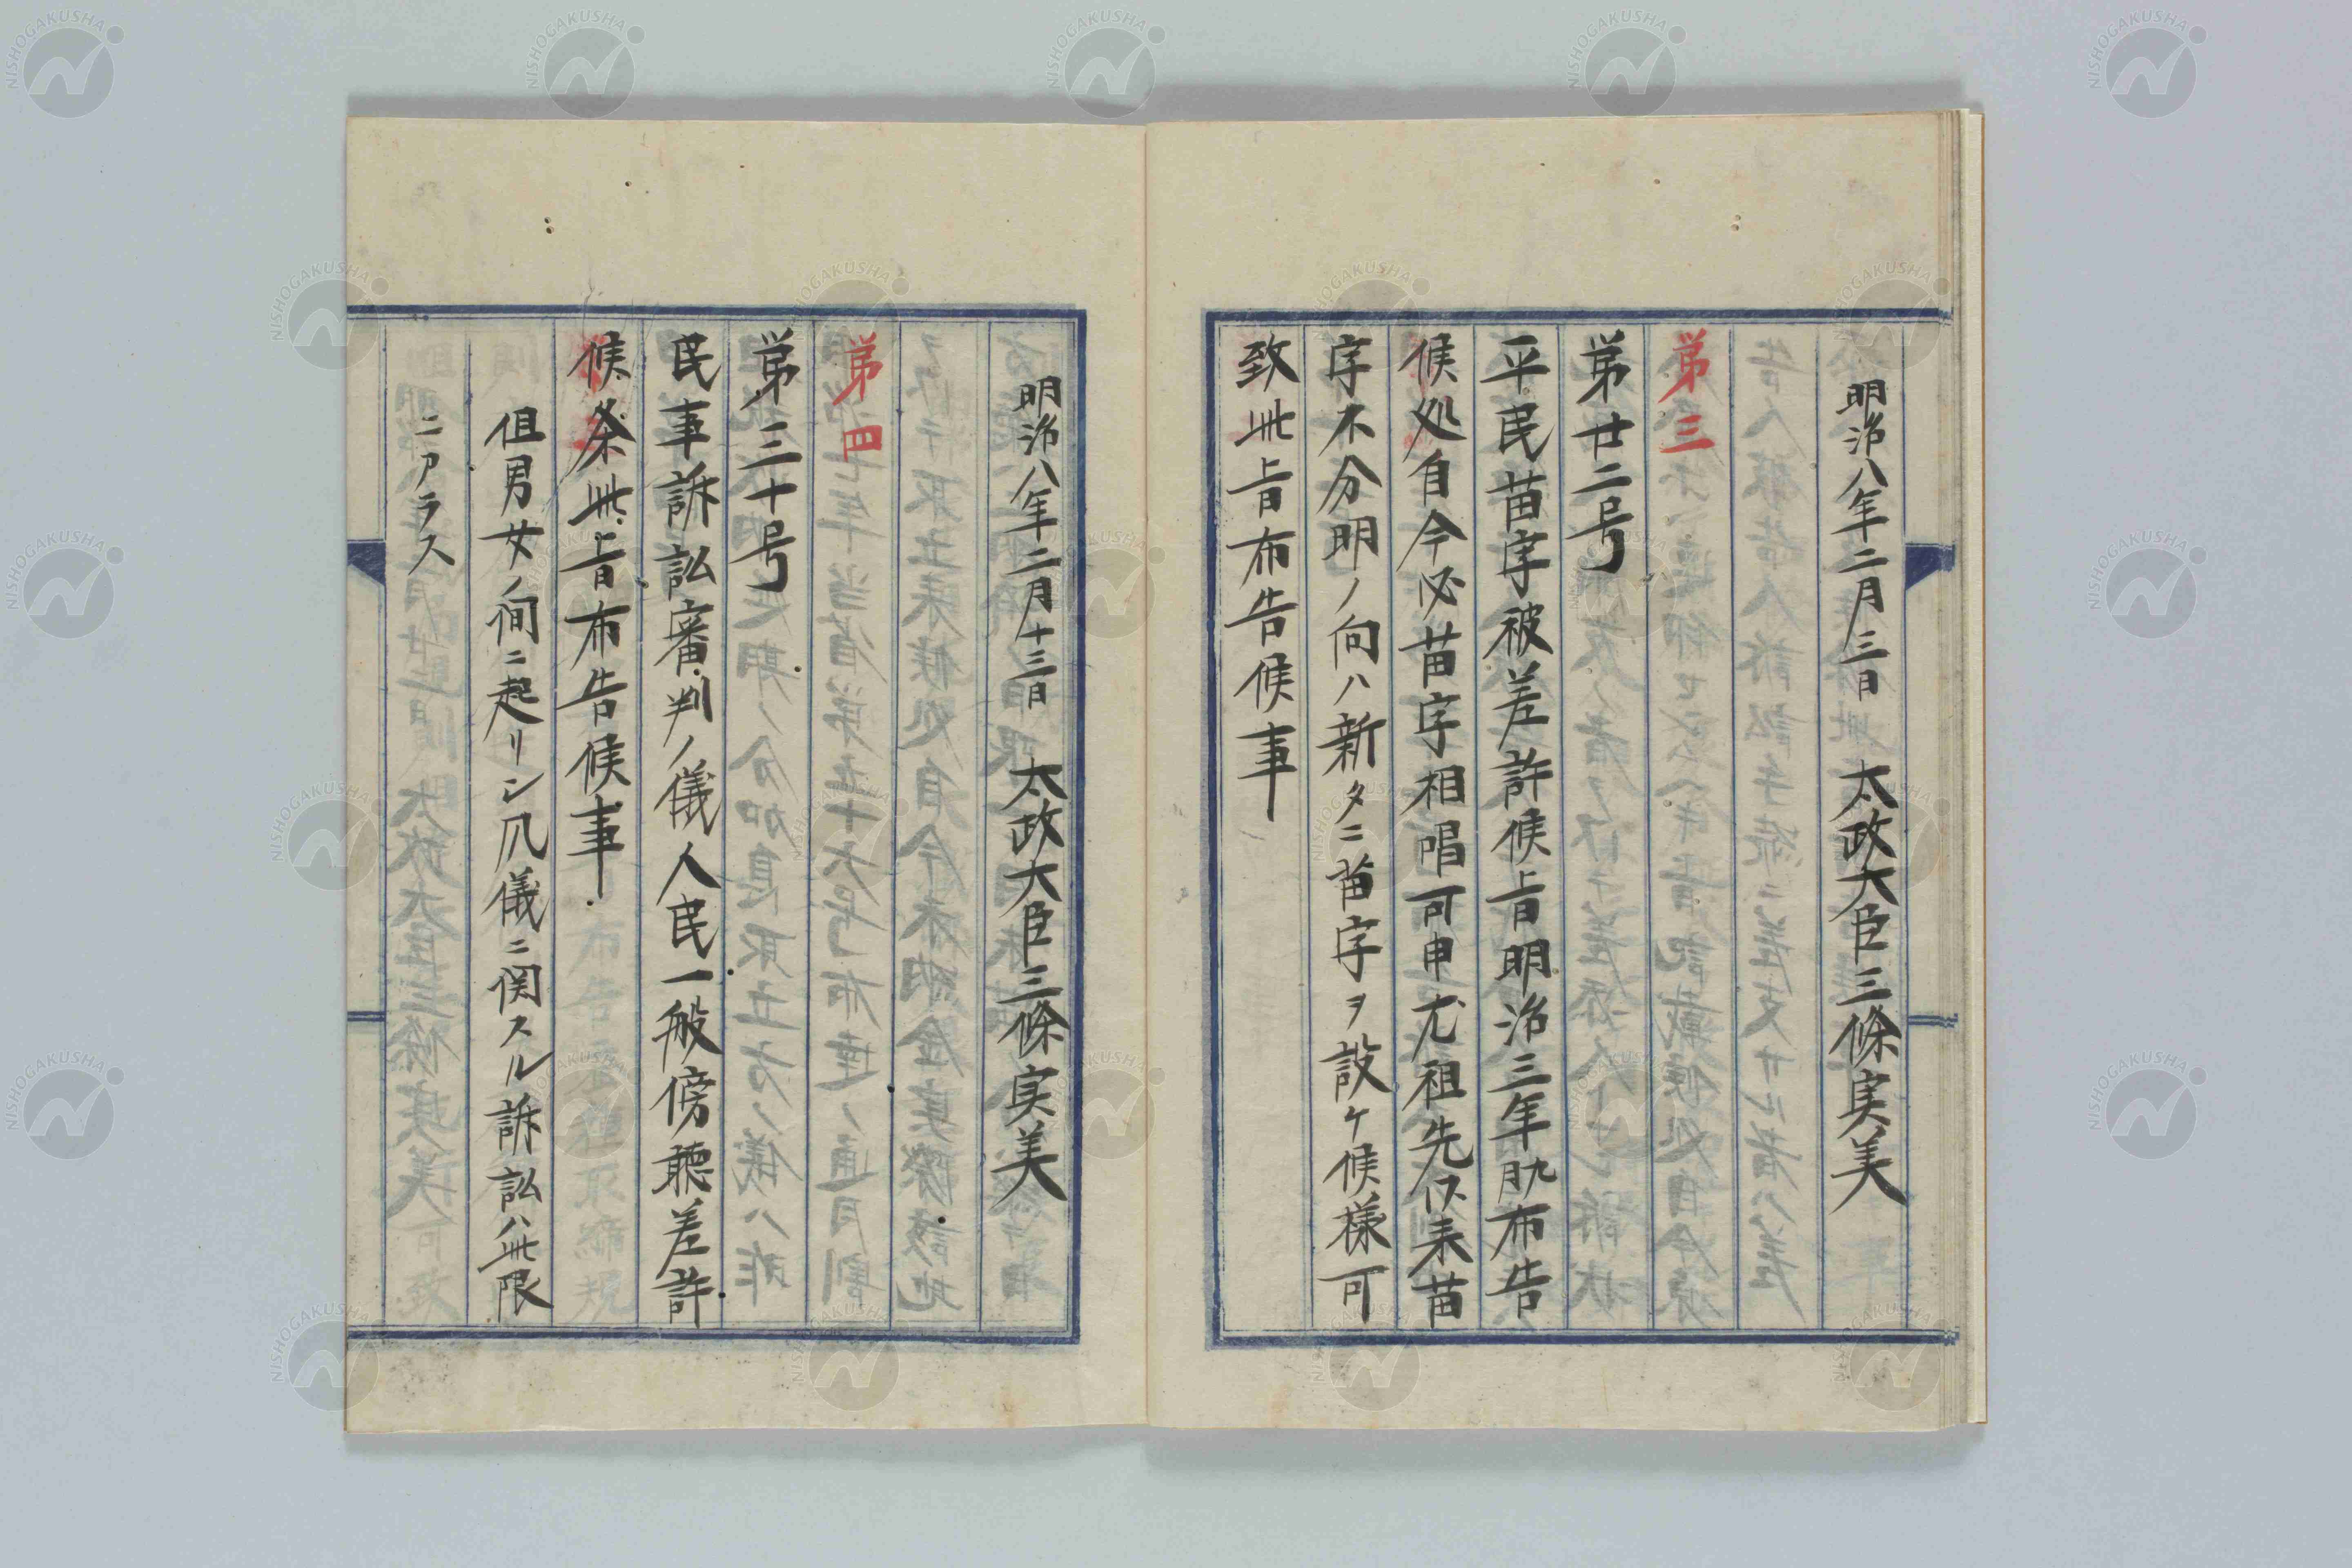 明治八年二月三日　太政大臣三條実美
第三
第廿二号
平民苗字被差許候旨明治三年九月布告
候処自今必苗字相唱可申尤祖先以来苗
字不分明ノ向ハ新タニ苗字ヲ設ケ候様可
致此旨布告候事
明治八年二月十三日　太政大臣三條実美
第四
第三十号
民事訴訟審判ノ儀人民一般傍聴差許
候条此旨布告候事
但男女ノ間ニ起リシ凡儀ニ関スル訴訟ハ此限
ニアラス